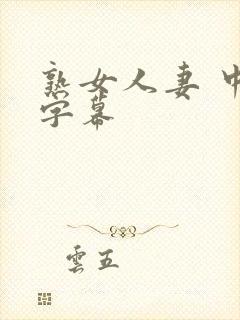 熟女人妻 中
字幕
雲五